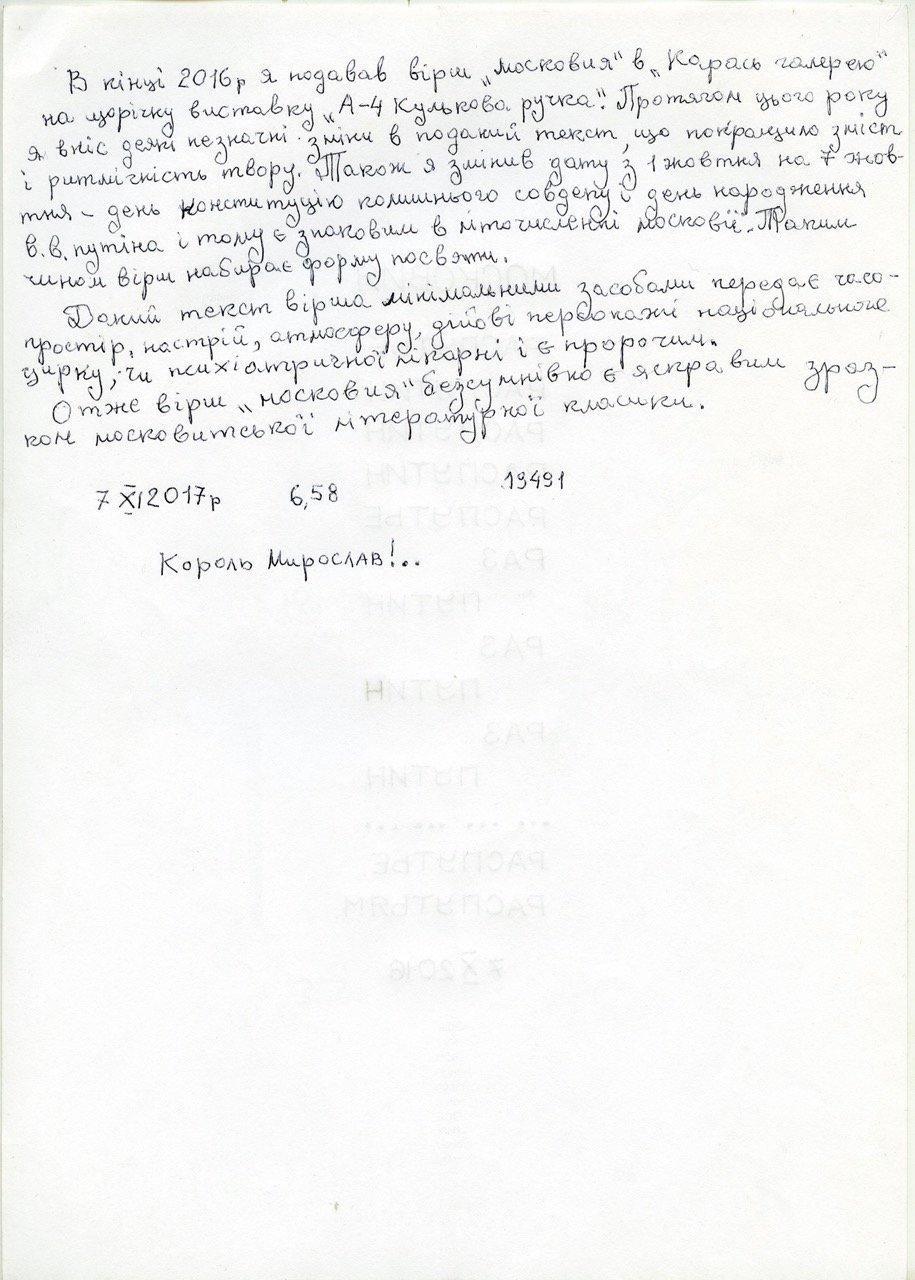 В кінці 2016р я подавав вірш „московия" в „Карась галерею"
на щорічку виставку „А-4 Кулькова ручка". Протягом цього року
я вніс деякі незначні зміни в поданий текст, що покращило зміст
і ритмічність твору. Також я змінив дату з 1 жовтня на 7 жов-
тня – день конституцію колишнього совдепу і день народження
в.в. путіна і тому є знаковим в літочисленні московії. Таким
чином вірш набирає форму посвяти.
Даний текст вірша мінімальними засобами передає часо-
простір, настрій, атмосферу, дійові персонажі національного
цирку, чи психіатричної лікарні і є пророчим.
Отже вірш „московия" безсумнівно є яскравим зраз-
ком московитської літературної класики.
7 XI 2017р 6,58 19491
Король Мирослав!..
РАСПУТИН
РАСПУТИН
РАСПУТЬЕ
РАЗ
ПУТИН
РАЗ
ПУТИН
РАЗ
ПУТИН
... ... ... ...
РАСПУТЬЕ
РАСПУТЬЯМ
7 X 2016